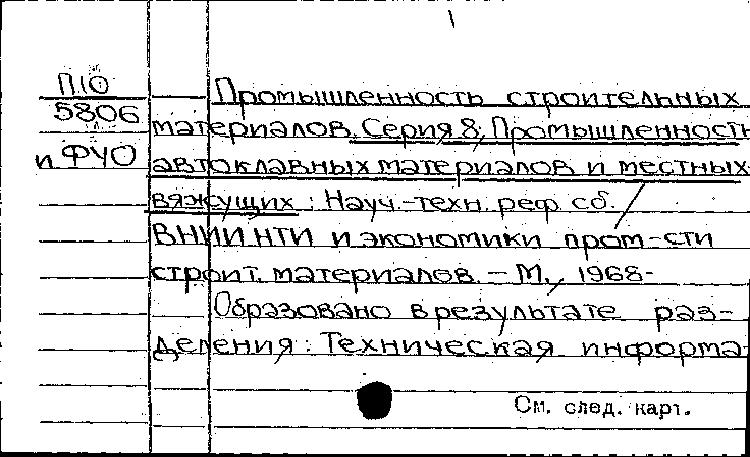 1
П10
5806
и ФЧО
Промышленность строительных
материалов. Серия 8, Промышленность
автоклавных материалов и местных
вяжущих : Науч.-техн. реф. сб. /
ВНИИНТИ и экономики пром-сти
строит. материалов. – М., 1968-
Образовано в результате раз-
деления: Техническая информа-
См. след. карт.